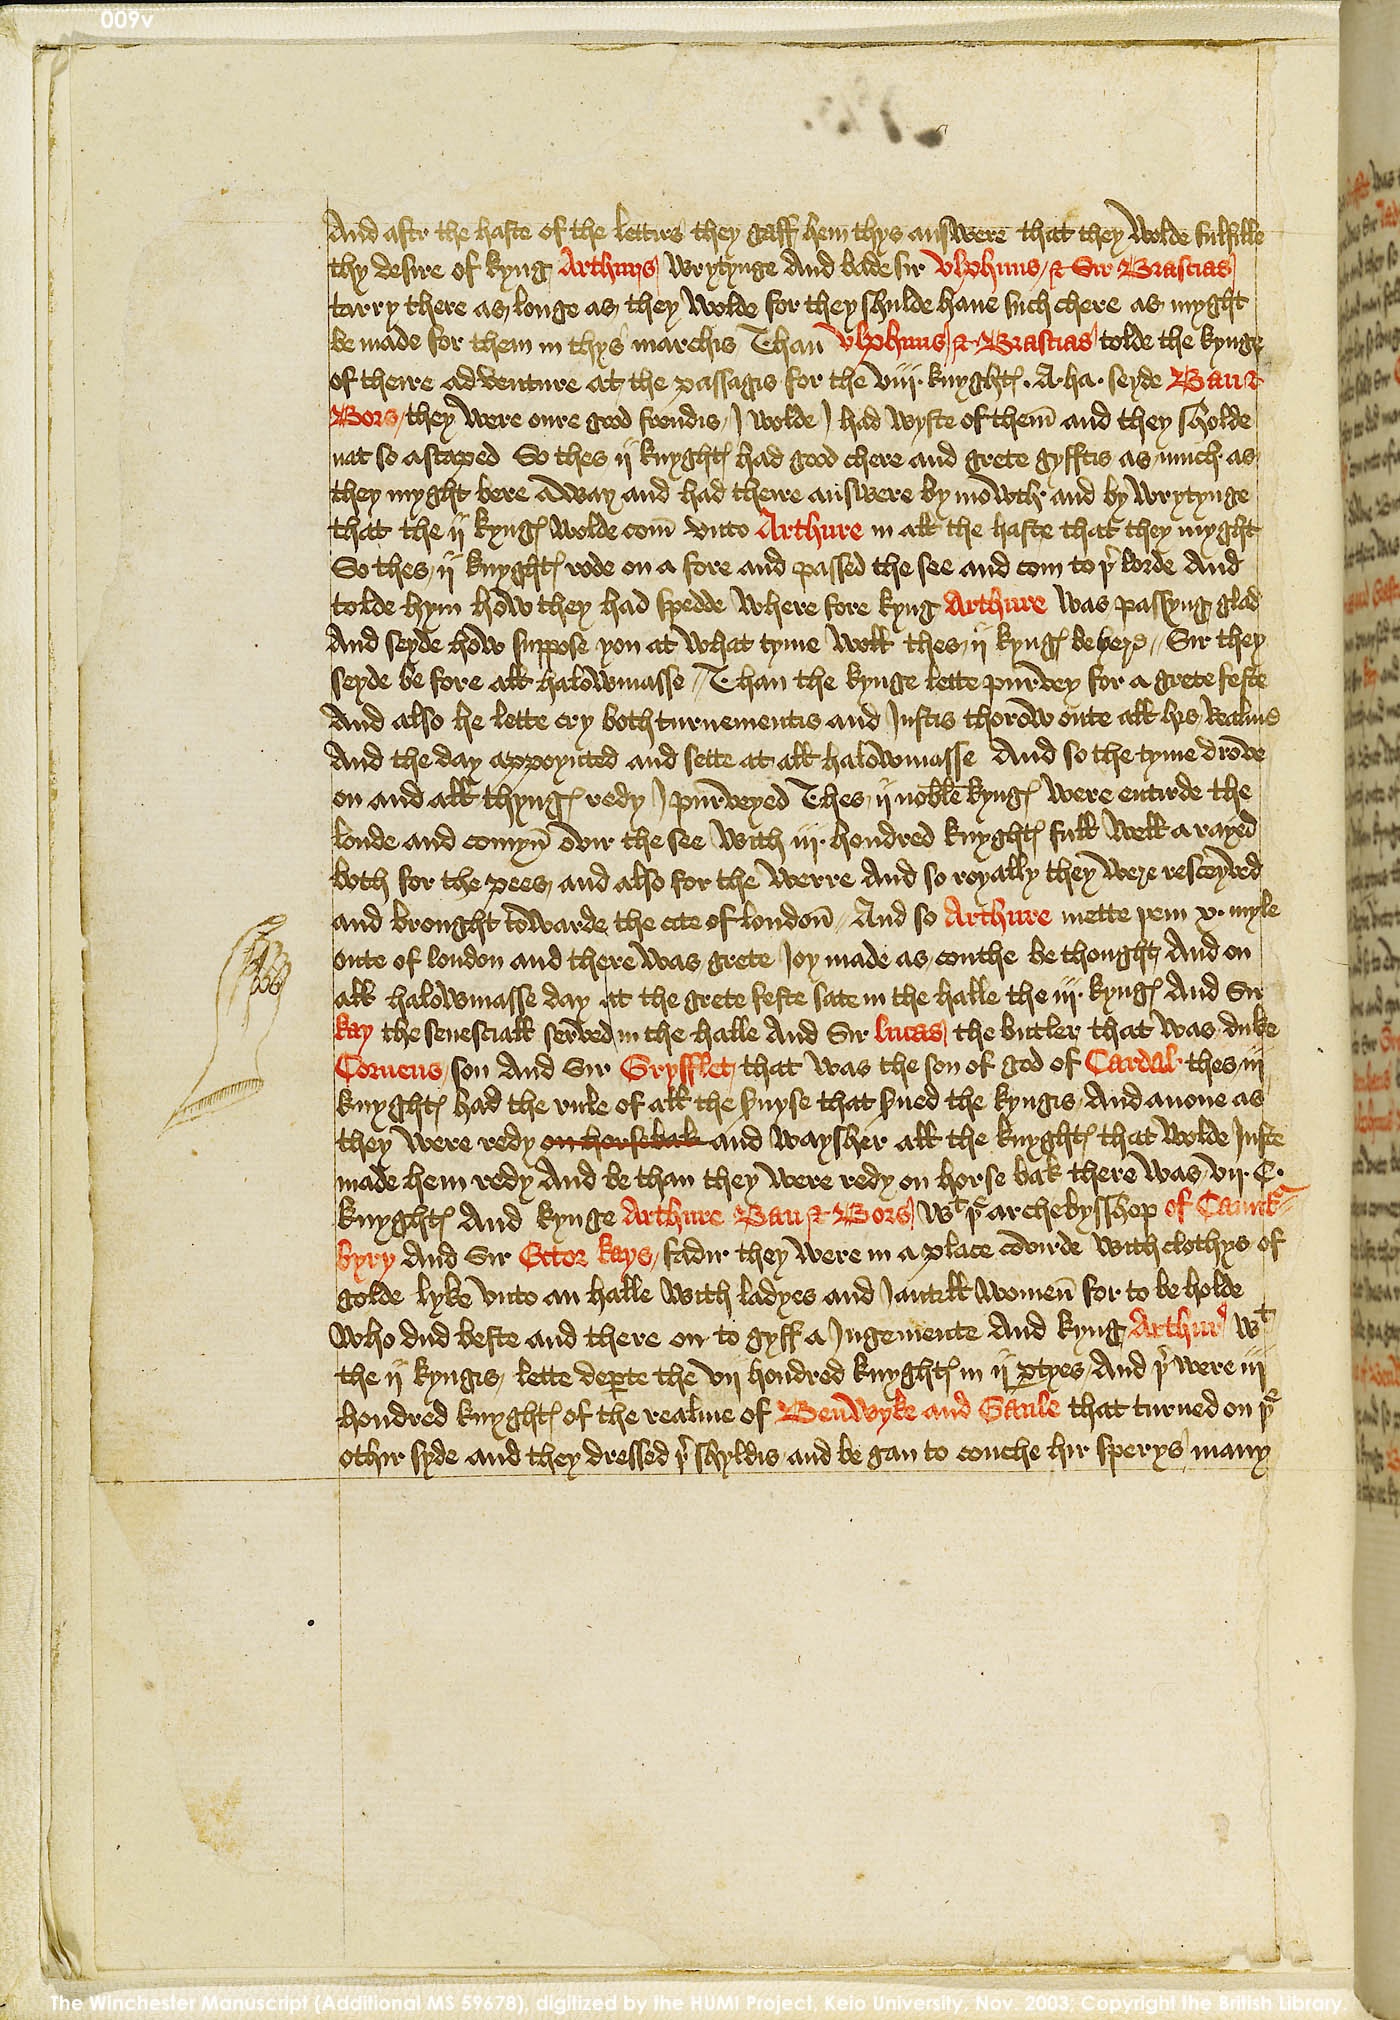 009v
And aftir the haste of the lettirs they gaff hem thys answere that they wolde fulfille
thy desire of kyng Arthurs wrytynge And bade sir Vlphuns & Sir Brascias
tarry there as longe as they wolde for they shulde haue such chere as myght
be made for them in thys marchis Than Vlphuns & Brascias tolde the kynge
of theire adventure at the passagis for the viij. knyghtꝭ. A ha. seyde Ban &
Bors they were oure good frendis I wolde I had wyste of theim̄ and they sholde
nat so a scaped So thes ij knyghtꝭ had good chere and grete gyfftis as much as
they myght bere away and had theire answere by mowth and by wrytynge
that the ij kyngꝭ wolde com̄ vnto Arthure in all the haste that they myght
So thes ij knyghtꝭ rode on a fore and passed the see and com to þʳ lorde And
tolde hym how they had spedde where fore kyng Arthure was passyng glad
And seyde how suppose you at what tyme woll thes ij kyngꝭ be here // Sir they
seyde be fore all halowmasse // Than the kynge lette purvey for a grete feste
And also he lette cry both turnementis and Justis thorow oute all his realme
And the day appoynted and sette at all halowmasse And so the tyme drove
on and all thyngꝭ redy I purveyed Thes ij noble kyngꝭ were entirde the
londe and comyn̄ ovir the see with iij. hondred knyghtꝭ full well a rayed
both for the pees and also for the werre And so royally they were resceyved
and brought towarde the cite of london̄ // And so Arthure mette þem x. myle
oute of london and there was grete Joy made as couthe be thought And on
all halowmasse day at the grete feste sate in the halle the iij. kyngꝭ And Sir
kay the senesciall served in the halle And Sir lucas the butler that was duke
Corneus son And Sir Gryfflet that was the son of god of Cardal thes iij
knyghtꝭ had the rule of all the ẜuyse that ẜued the kyngis And anone as
they were redy on horsebak and waysher all the knyghtꝭ that wolde Juste
made hem redy And be than they were redy on horse bak there was vij. C.
knyghtꝭ And kynge Arthure Ban & Bors wᵗ þᵉ archebysshop of Caunt̄
byry And Sir Ector kays fadir they were in a place covirde with clothys of
golde lyke vnto an halle with ladyes and Jantill women̄ for to be holde
who dud beste and there on to gyff a Jugemente And kyng Arthur wᵗ
the ij kyngis lette deꝑte the vij hondred knyghtꝭ in ij ꝑtyes And þʳ were iij
hondred knyghtꝭ of the realme of Benwyke and Gaule that turned on þᵉ
othir syde and they dressed þʳ shyldis and be gan to couche hir sperys many
The Winchester Manuscript (Additional MS 59678), digitized by the HUMI Project, Keio University, Nov. 2003; Copyright the British Library.